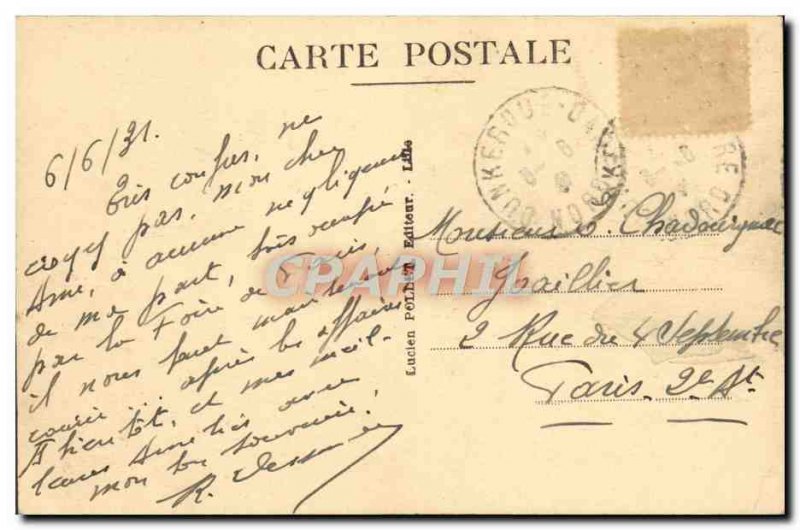 CARTE POSTALE
6/6/31.
Très confus, ne
croyez pas, mon cher
Ami, à aucune négligence
de ma part, très occupé
par la Foire de Paris,
il nous faut maintenant
courir ... après les affaires
A bientôt, et mes meil-
leures Amitiés avec
mon bon souvenir.
R.
Lucien POLLET Editeur. - Lille
DUNKERQUE
NORD
Monsieur O. Chadourgnac
Joaillier
2 Rue du 4 Septembre
Paris. 2e At
CRAPHIL